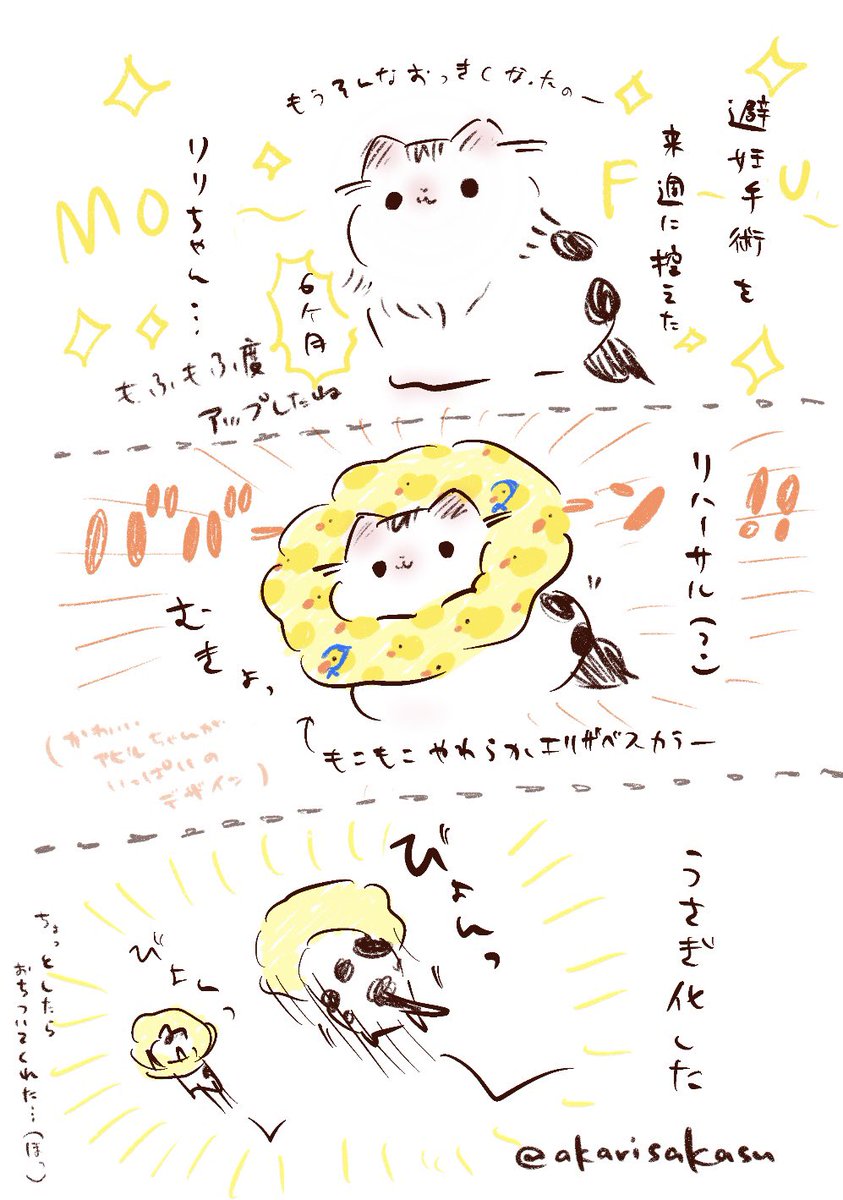 もうそんなおっきくなったのー
避妊手術を
来週に控えた
リリちゃん…
MO〜
F〜U〜
6ヶ月
もふもふ度
アップしたね
リハーサル(?)
ババーン!!
むきょっ
もこもこやわらかエリザベスカラー
(かわいい
アヒルちゃんが
いっぱいの
デザイン)
うさぎ化した
びょんっ
びょんっ
ちょっとしたら
おちついてくれた…(ほっ)
@akarisakasu